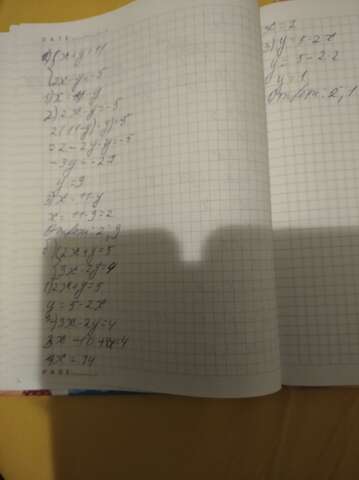 DATE
{x+y=11
{2x-y=-5
1) x=11-y
2) 2x-y=-5
2(11-y)-y=-5
22-2y-y=-5
-3y=-27
y=9
3) x=11-y
x=11-9=2
Ответ: 2; 9
{2x+y=5
{3x-2y=4
1) 2x+y=5
y=5-2x
2) 3x-2y=4
3x-10+4x=4
7x=14
PAGE
x=2
3) y=5-2x
y=5-2·2
y=1
Ответ: 2; 1